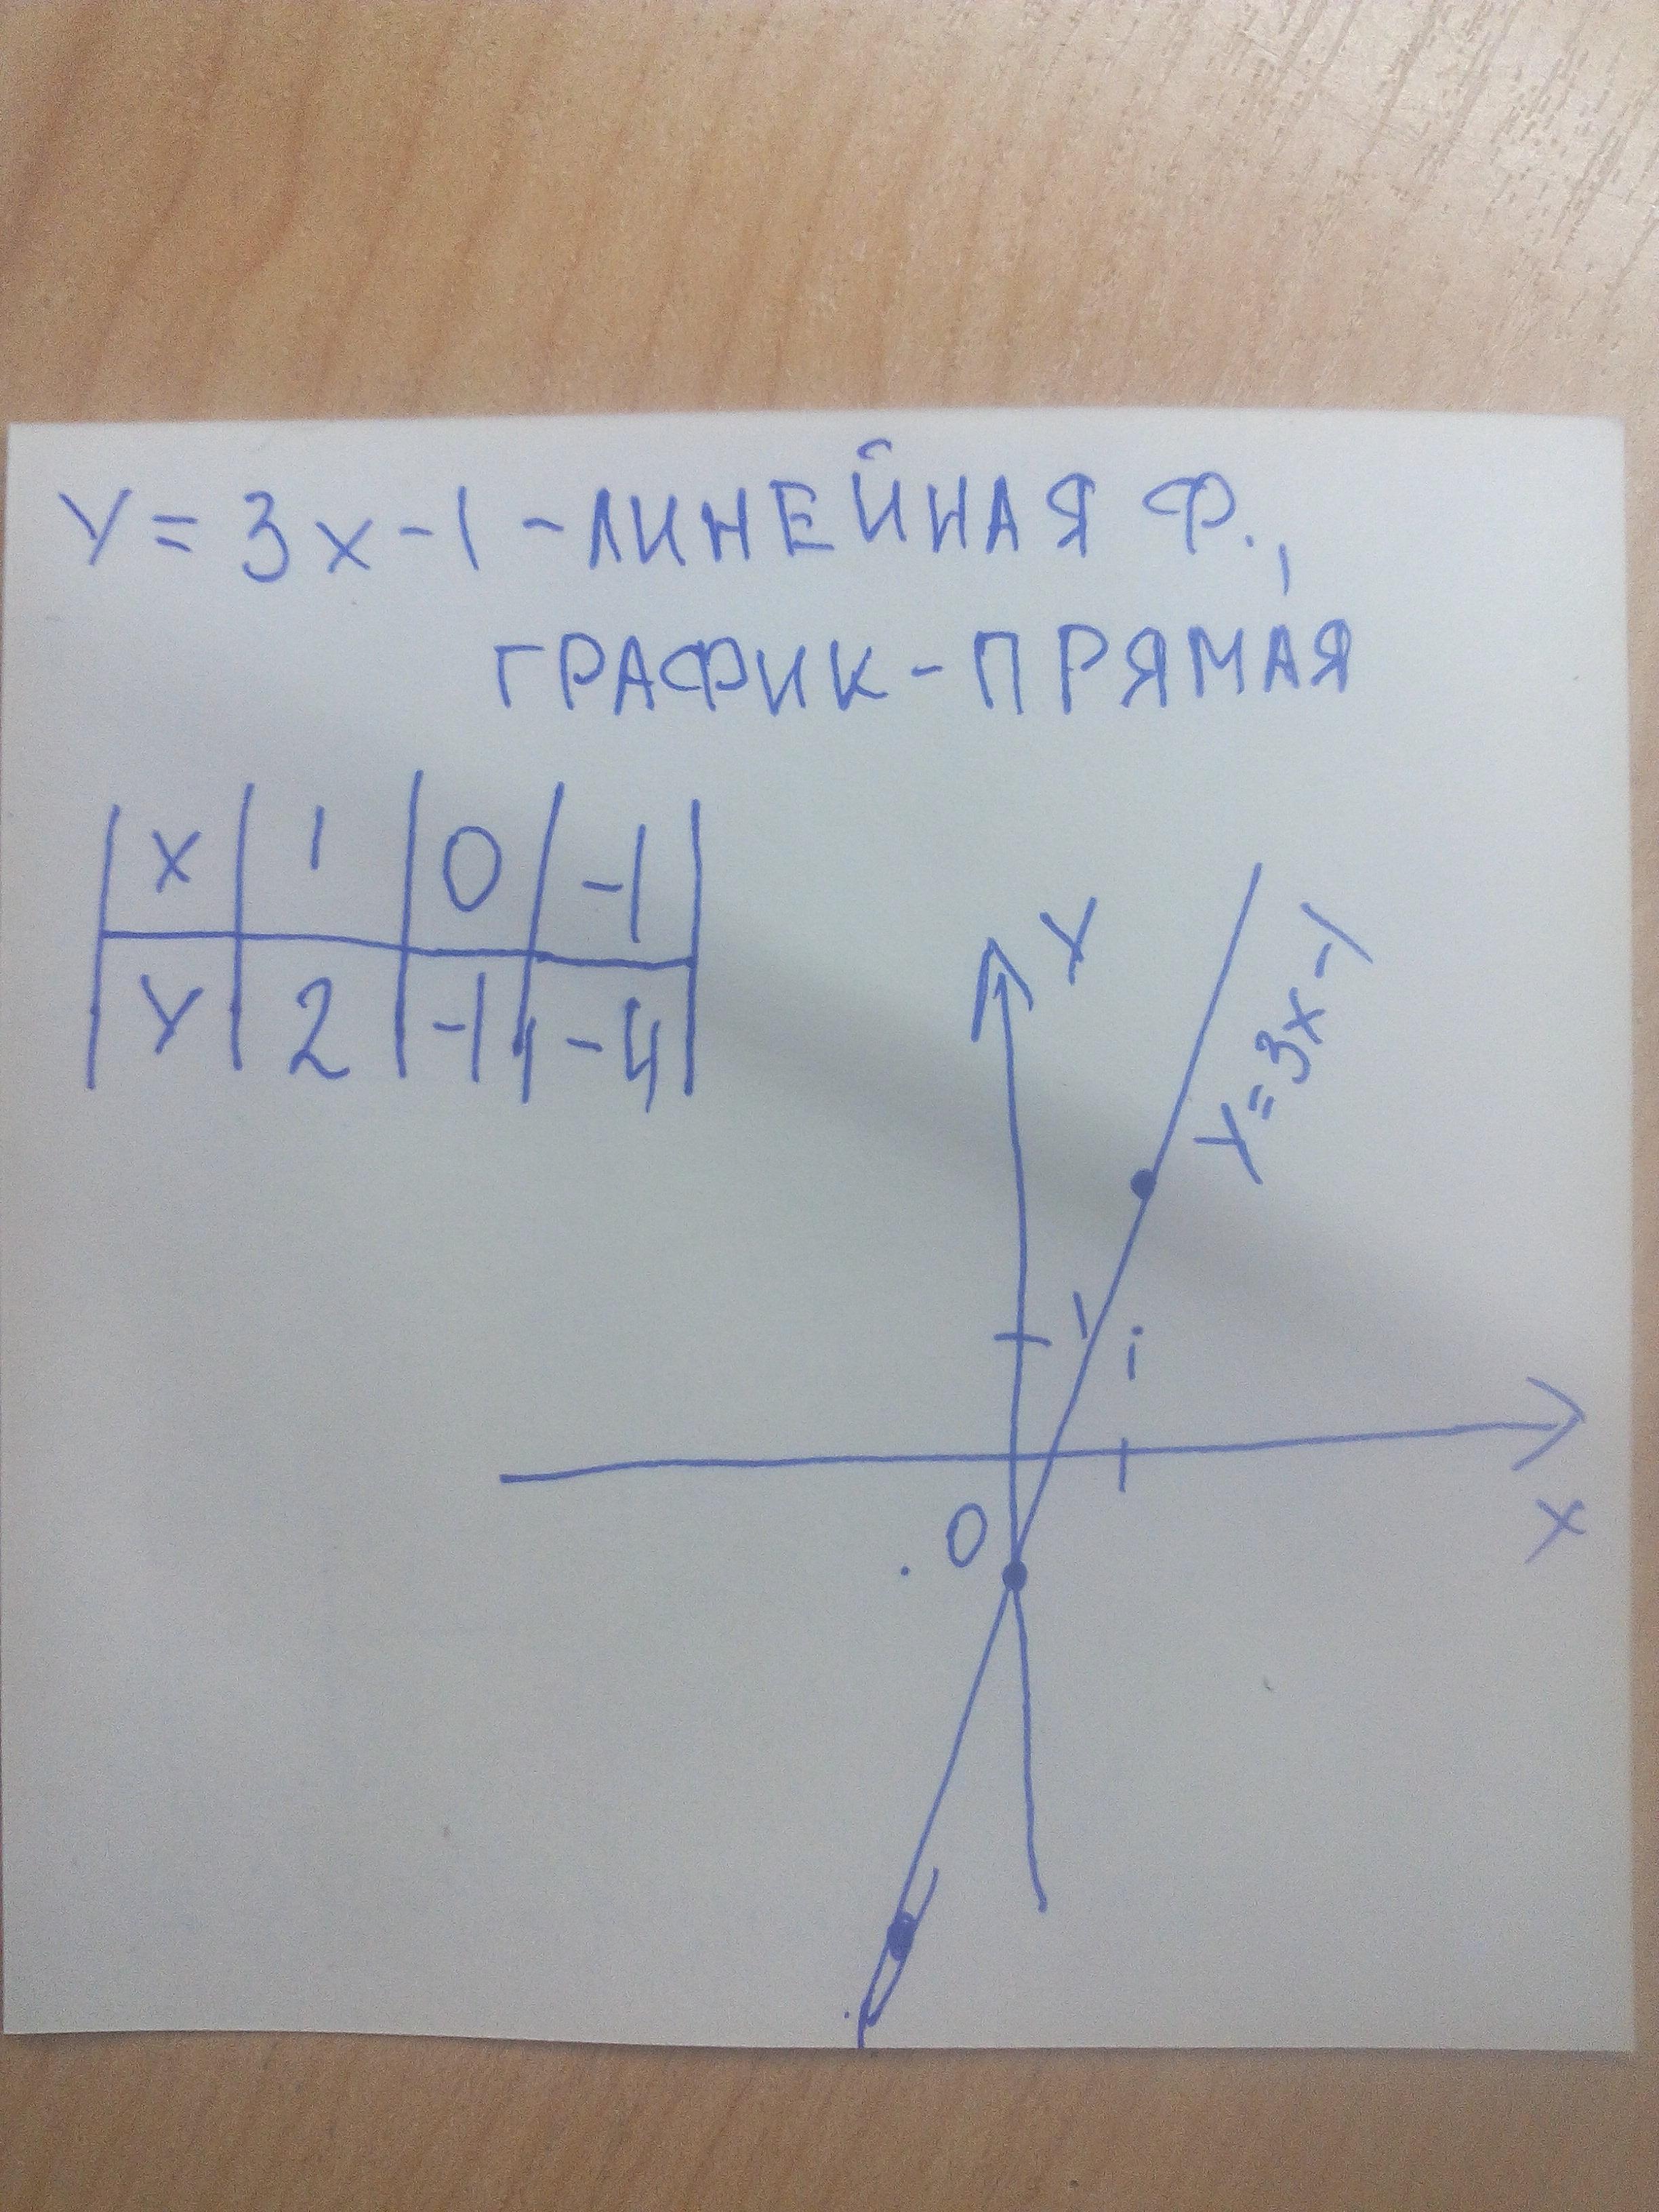 y = 3x - 1 - ЛИНЕЙНАЯ Ф.,
ГРАФИК - ПРЯМАЯ
x | 1 | 0 | -1
y | 2 | -1 | -4
y
y = 3x - 1
1
1
0
x